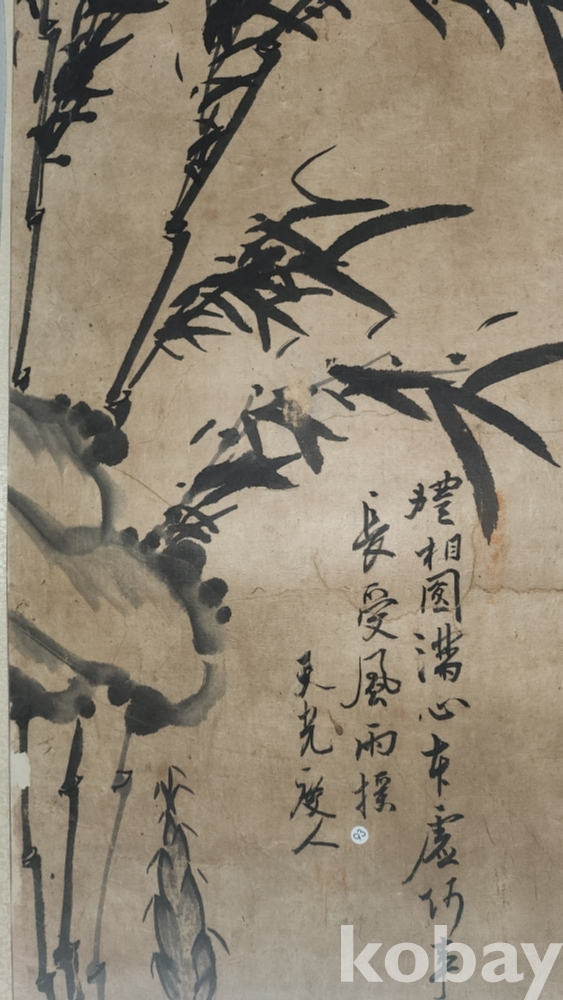 體相圓滿心本虛何事
長受風雨摸
又光癡人
93
kobay